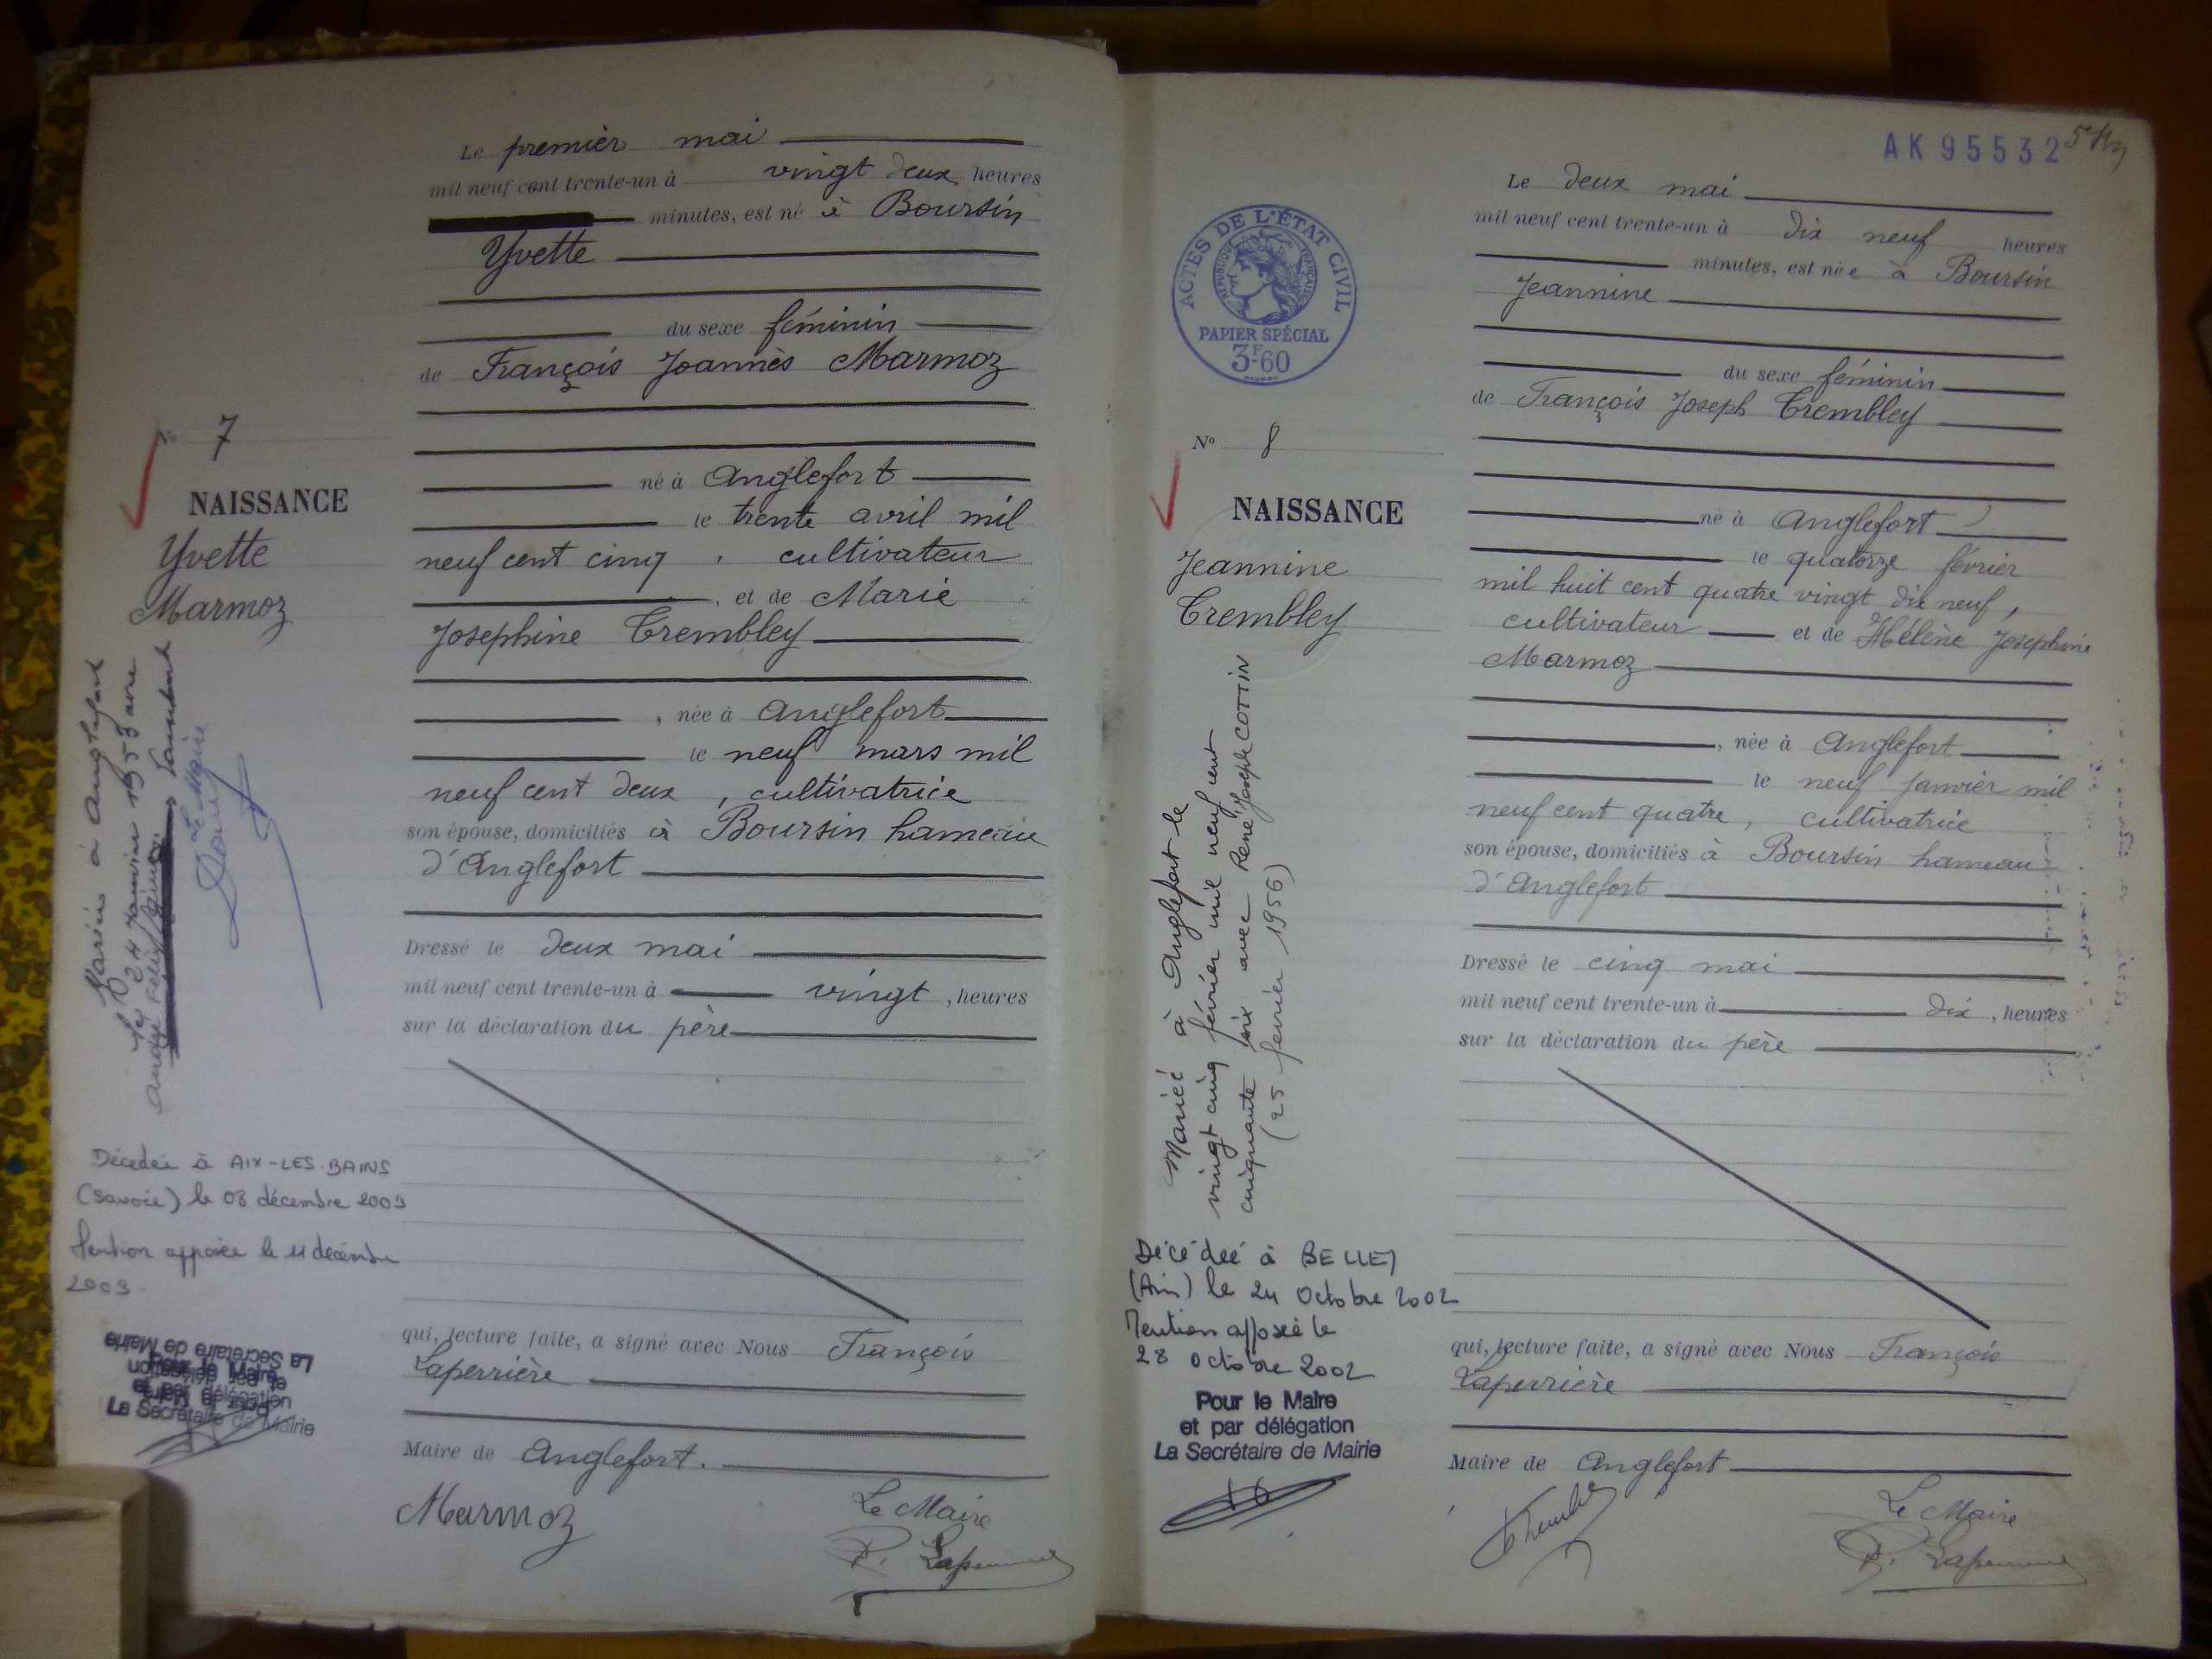 Le premier mai
mil neuf cent trente-un à vingt deux heures
minutes, est né à Boursin
Yvette
du sexe féminin
de François Joannès Marmoz
né à Anglefort
le trente avril mil
neuf cent cinq, cultivateur
, et de Marie
Josephine Trembley
, née à Anglefort
le neuf mars mil
neuf cent deux, cultivatrice
son épouse, domiciliés à Boursin hameau
d'Anglefort
Dressé le deux mai
mil neuf cent trente-un à vingt, heures
sur la déclaration du père
qui, lecture faite, a signé avec Nous François
Laperrière
Maire de Anglefort.
Marmoz
Le Maire
7
NAISSANCE
Yvette
Marmoz
à Anglefort
le 24 Janvier 1953 avec
Le Maire
Décédée à AIX-LES-BAINS
(Savoie) le 08 décembre 2003
Mention apposée le 11 décembre
2003
La Secrétaire de Mairie
Pour le Maire
et par délégation
La Secrétaire de Mairie
AK 95532
ACTES DE L'ÉTAT CIVIL
RÉPUBLIQUE FRANÇAISE
PAPIER SPÉCIAL
3F60
Le deux mai
mil neuf cent trente-un à dix neuf heures
minutes, est née à Boursin
Jeannine
du sexe féminin
de François Joseph Trembley
né à Anglefort
le quatorze février
mil huit cent quatre vingt dix neuf,
cultivateur et de Hélène Josephine
Marmoz
, née à Anglefort
le neuf Janvier mil
neuf cent quatre, cultivatrice
son épouse, domiciliés à Boursin hameau
d'Anglefort
Dressé le cinq mai
mil neuf cent trente-un à dix, heures
sur la déclaration du père
qui, lecture faite, a signé avec Nous François
Laperrière
Maire de Anglefort
Le Maire
No 8
NAISSANCE
Jeannine
Trembley
Mariée à Anglefort le
vingt cinq février mil neuf cent
cinquante six avec René Joseph COTTIN
(25 février 1956)
Décédée à BELLEY
(Ain) le 24 Octobre 2002
Mention apposée le
28 octobre 2002
Pour le Maire
et par délégation
La Secrétaire de Mairie